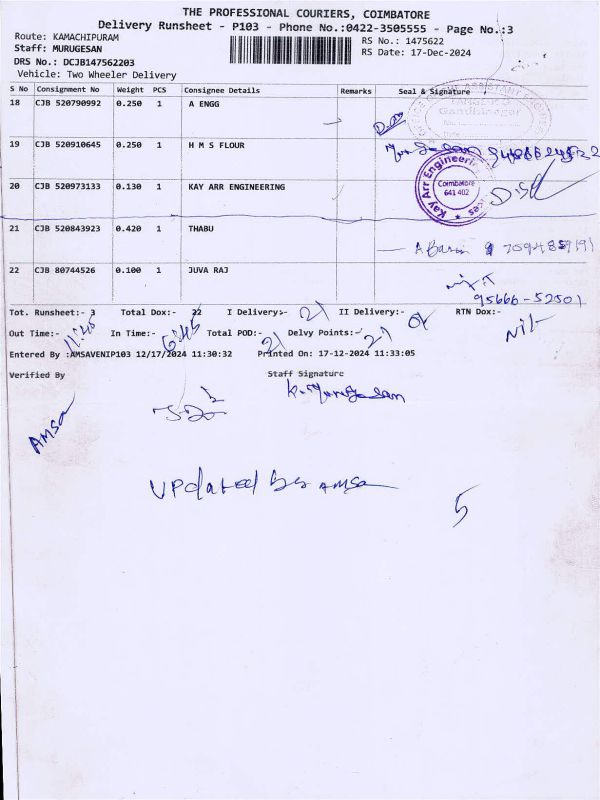 THE PROFESSIONAL COURIERS, COIMBATORE
Delivery Runsheet - P103 - Phone No.:0422-3505555 - Page No.:3
Route: KAMACHIPURAM RS No.: 1475622
Staff: MURUGESAN RS Date: 17-Dec-2024
DRS No.: DCJB147562203
Vehicle: Two Wheeler Delivery
S No Consignment No Weight PCS Consignee Details Remarks Seal & Signature
18 CJB 520790992 0.250 1 A ENGG
Gandhinagar
19 CJB 520910645 0.250 1 H M S FLOUR
20 CJB 520973133 0.130 1 KAY ARR ENGINEERING
Kay Arr Engineering
Coimbatore
641 402
21 CJB 520843923 0.420 1 THABU
22 CJB 80744526 0.100 1 JUVA RAJ
95666-52501
Tot. Runsheet:- 3 Total Dox:- 22 I Delivery:- 21 II Delivery:- RTN Dox:- Nil
Out Time:- 11:45 In Time:- 6:45 Total POD:- 21 Delvy Points:- 21
Entered By :AMSAVENIP103 12/17/2024 11:30:32 Printed On: 17-12-2024 11:33:05
Verified By Staff Signature
AMSA K. Murugesan
UPdated by AMSA
5